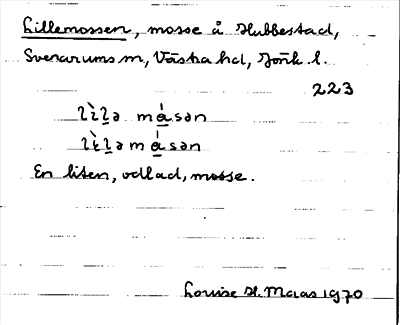 Lillemossen, mosse å Hubbestad,
Svenarums sn, Västra hd, Jönk. l.
223
lìlə måsən
lìləmåsən
En liten, odlad, mosse.
Louise H. Maas 1970